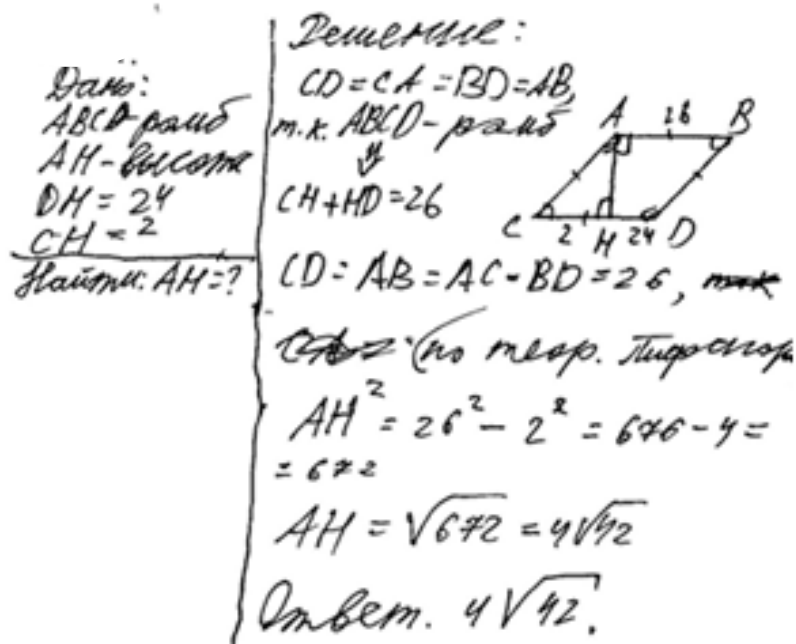 Дано:
ABCD-ромб
AH-высота
DH = 24
CH = 2
Найти: AH=?
Решение:
CD=CA=BD=AB,
т.к. ABCD-ромб
⇓
CH+HD=26
A 26 B
C 2 H 24 D
CD=AB=AC=BD=26,
(по теор. Пифагор
AH² = 26² - 2² = 676 - 4 =
= 672
AH = √672 = 4√42
Ответ. 4√42.